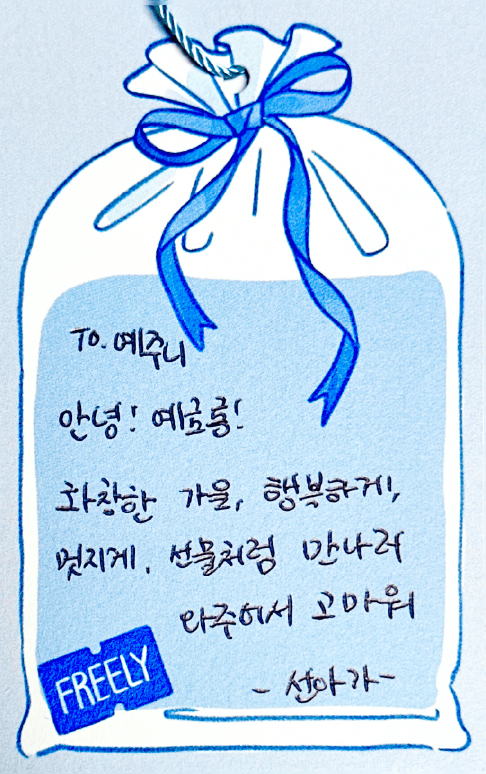 To. 예주니
안녕! 예쪼롱!
화창한 가을, 행복하게,
멋지게, 선물처럼 만나러
와주어서 고마워
- 선아가 -
FREELY